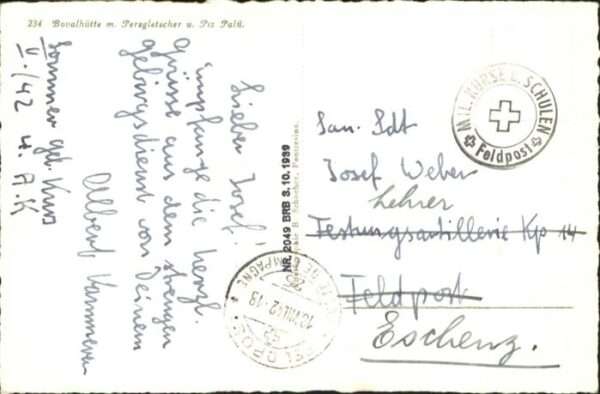 234 Bovalhütte m. Persgletscher u. Piz Palü.
Lieber Josef!
Empfange die herzl.
Grüsse aus dem strengen
gebirgsdienst von Deinem
Albert
Sommer geb. Kurs
V./42 4. A.K
NR. 2049 BRB 3.10.1939
MIL. KURSE & SCHULEN
Feldpost
San. Sdt
Josef Weber
Lehrer
Festungsartillerie Kp 14
Feldpost
Eschenz.
FELDPOST
POSTE DE CAMPAGNE